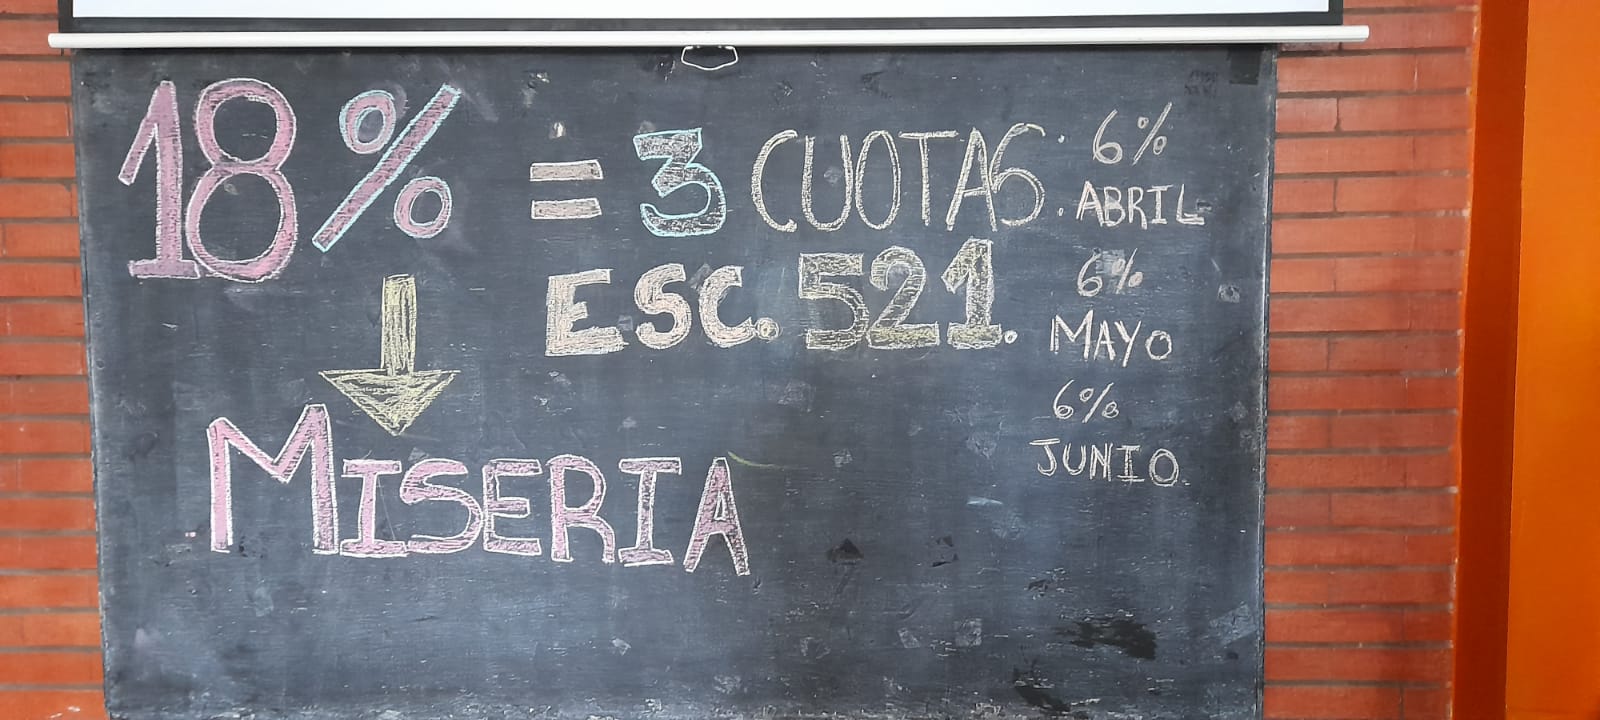 18% = 3 CUOTAS: 6%
ABRIL
6%
MAYO
6%
JUNIO.
ESC. 521.
MISERIA